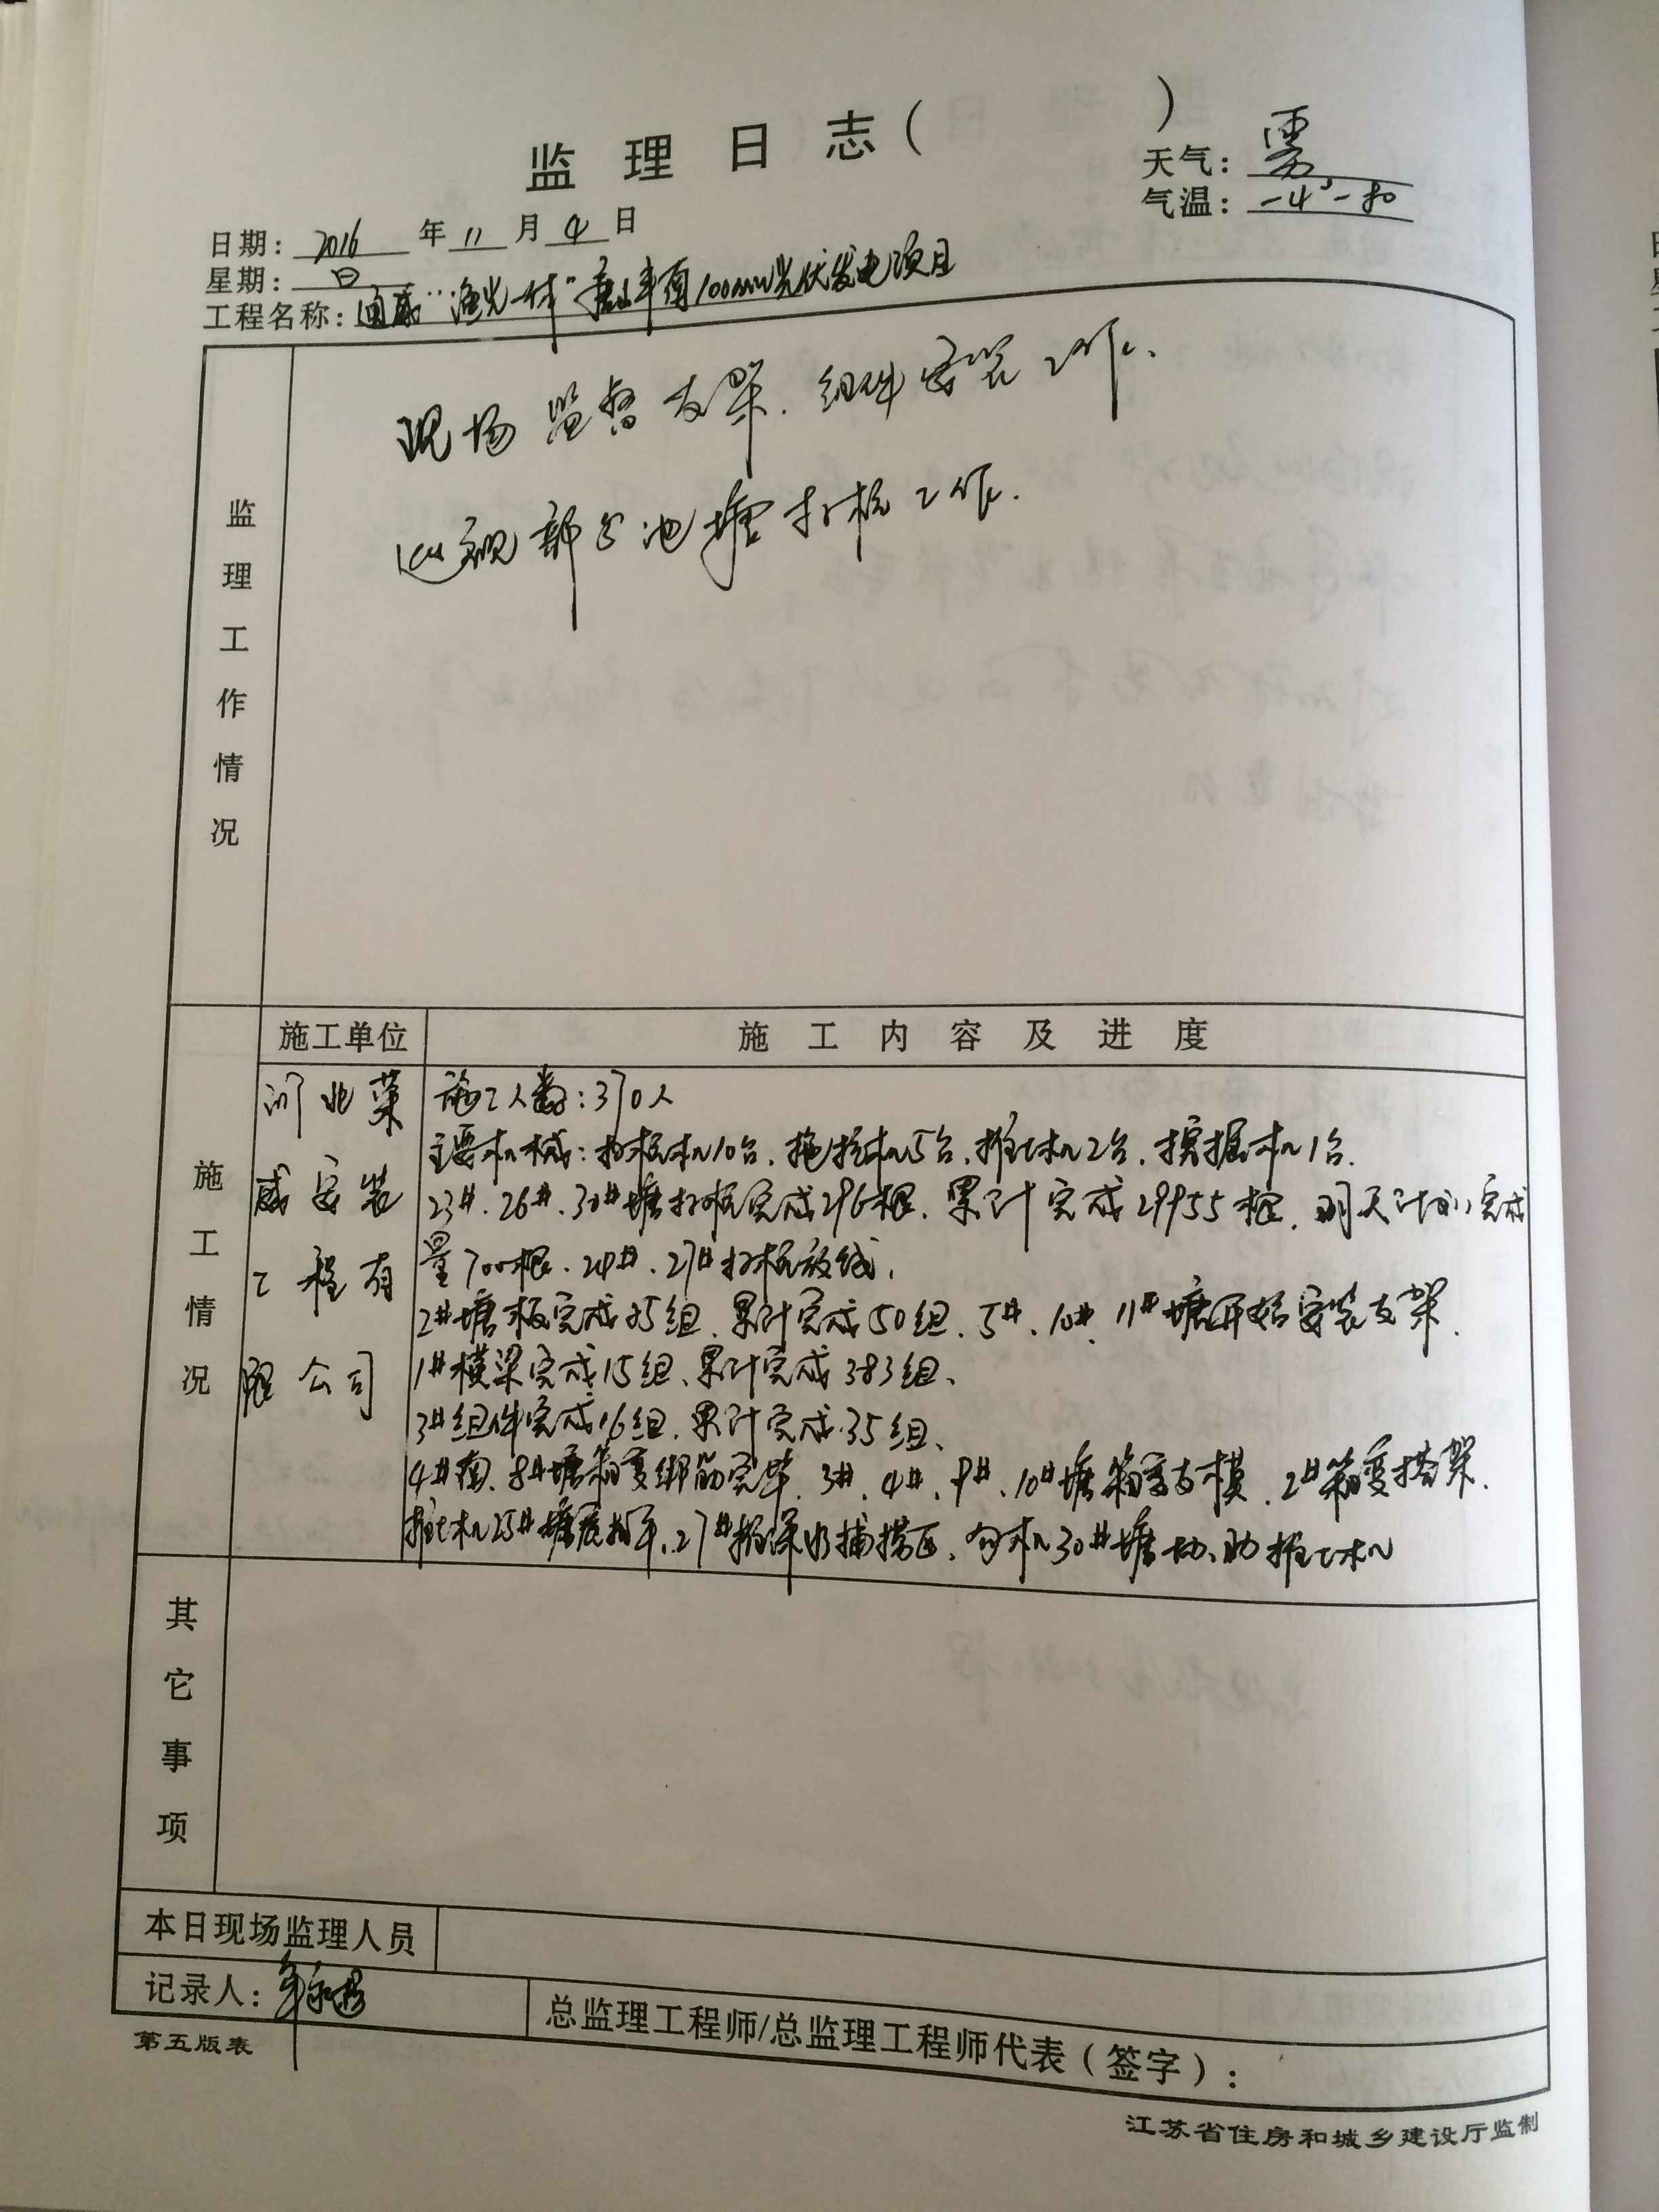 监理日志( )
天气: 雾
气温: -4°-8°
日期: 2016 年 11 月 4 日
星期: 日
工程名称: 通威"渔光一体"唐山丰南100MW光伏发电项目
监理工作情况
现场监督支架、组件安装工作、
巡视部分池塘打桩工作.
施工情况
施工单位
施工内容及进度
河北荣
威安装
工程有
限公司
施工人数:370人
主要机械:打桩机10台、拖拉机5台、推土机2台、挖掘机1台.
23#、26#、30#塘打桩完成296根、累计完成29955根、明天计划完成
量700根、24#、27#打桩放线、
2#塘板完成25组、累计完成50组、5#、10#、11#塘开始安装支架、
1#横梁完成15组、累计完成383组、
3#组件完成16组、累计完成35组、
4#南、8#塘箱变绑筋完毕、3#、4#、9#、10#塘箱变支模、2#箱变搭架、
推土机25#塘底推平、27#推深水捕捞区、勾机30#塘协助推土机
其它事项
本日现场监理人员
记录人:
总监理工程师/总监理工程师代表(签字):
第五版表
江苏省住房和城乡建设厅监制